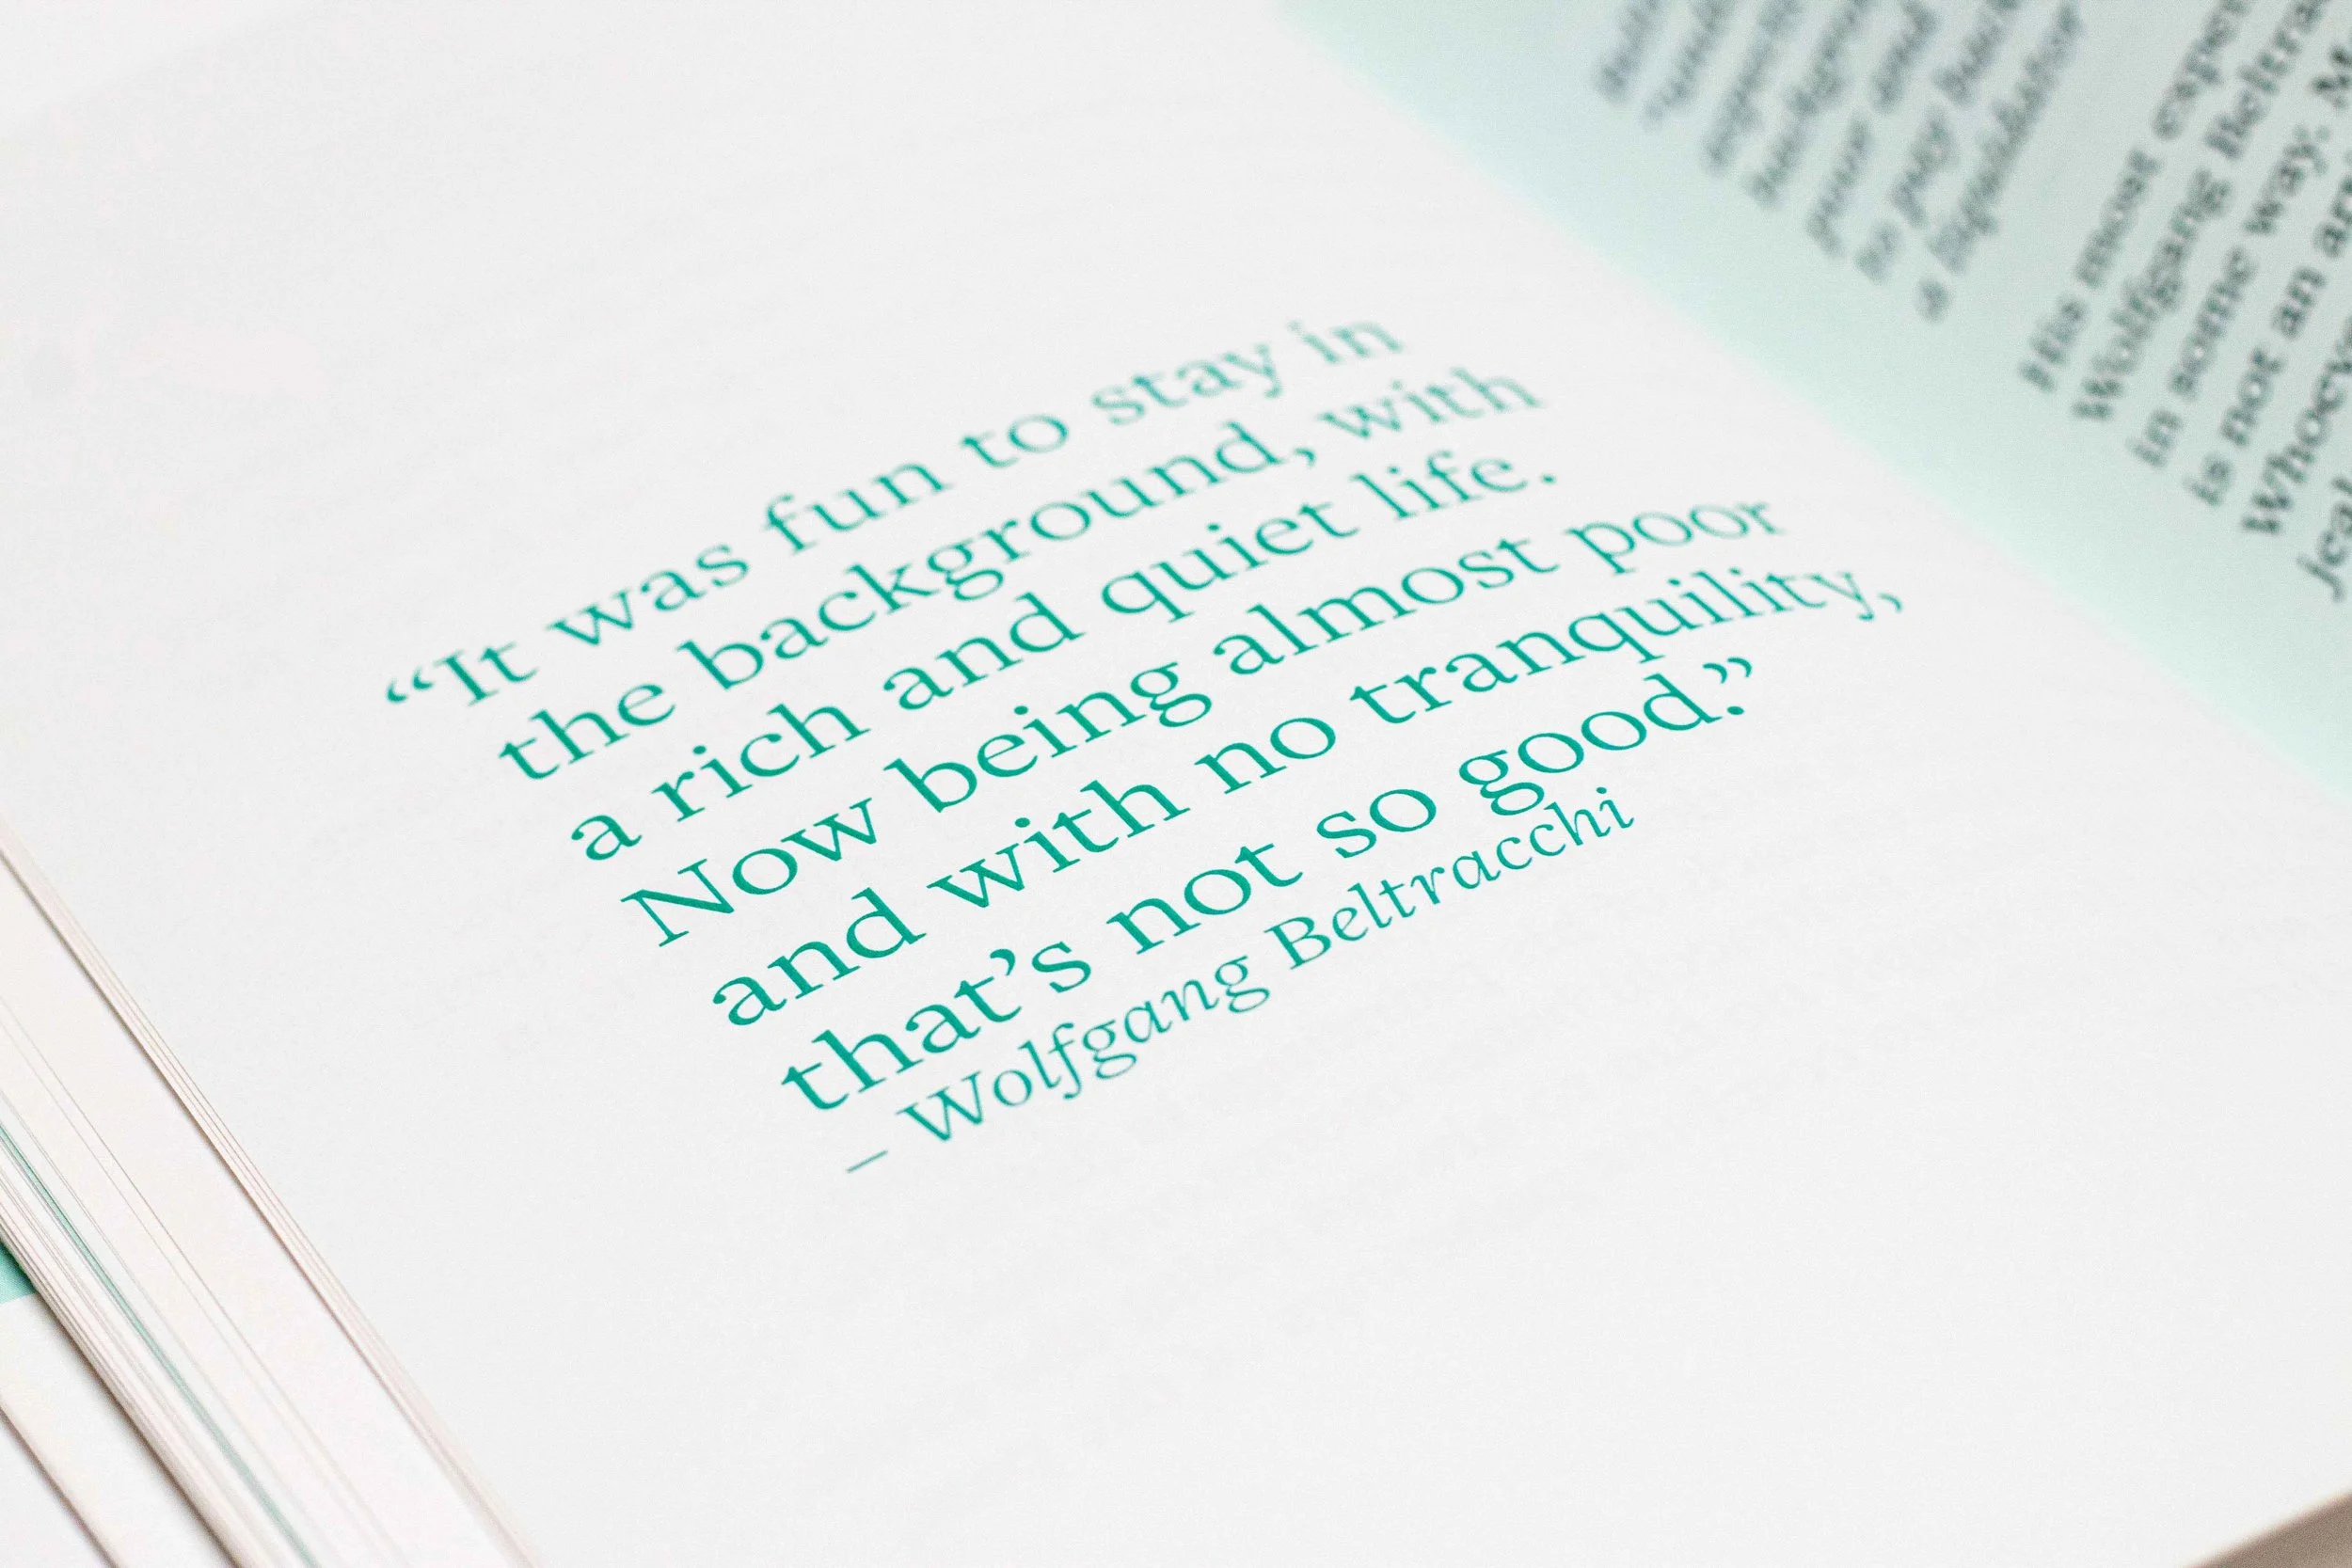 “It was fun to stay in
the background, with
a rich and quiet life.
Now being almost poor
and with no tranquility,
that’s not so good.”
– Wolfgang Beltracchi
to pay back
a liquidator
His most
Wolfgang Beltra
in some way. M
is not an